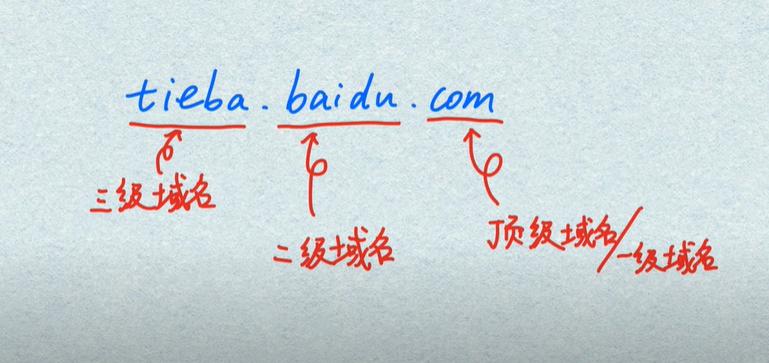 tieba.baidu.com
三级域名
二级域名
顶级域名/一级域名